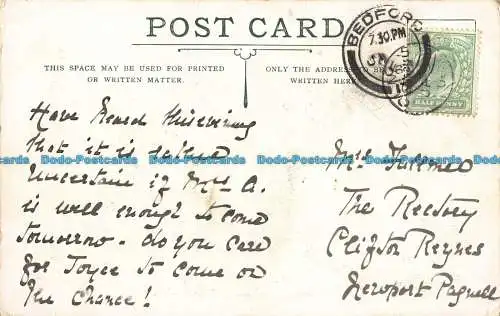 POST CARD
THIS SPACE MAY BE USED FOR PRINTED
OR WRITTEN MATTER.
ONLY THE ADDRESS TO BE
WRITTEN HERE
BEDFORD
7.30 PM
HALFPENNY
Have heard this evening
that it is rather
uncertain if Mrs A.
is well enough to come
tomorrow - do you care
for Joyce to come on
the chance!
Mrs
The Rectory
Clifton Reynes
Newport Pagnell
Dodo-Postcards Dodo-Postcards Dodo-Postcards Dodo-Postcards